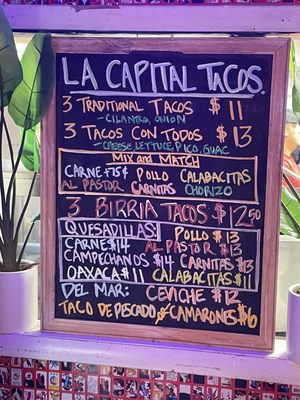 LA CAPITAL TACOS.
3 TRADITIONAL TACOS $11
-CILANTRO, ONION
3 TACOS CON TODOS $13
-CHEESE, LETTUCE, PICO, GUAC
MIX and MATCH
CARNE +75¢ POLLO CALABACITAS
AL PASTOR CARNITAS CHORIZO
3 BIRRIA TACOS $12.50
QUESADILLAS POLLO $13
CARNE $14 AL PASTOR $13
CAMPECHANOS $14 CARNITAS $13
OAXACA $11 CALABACITAS $11
DEL MAR: CEVICHE $12
TACO DE PESCADO & CAMARONES $6